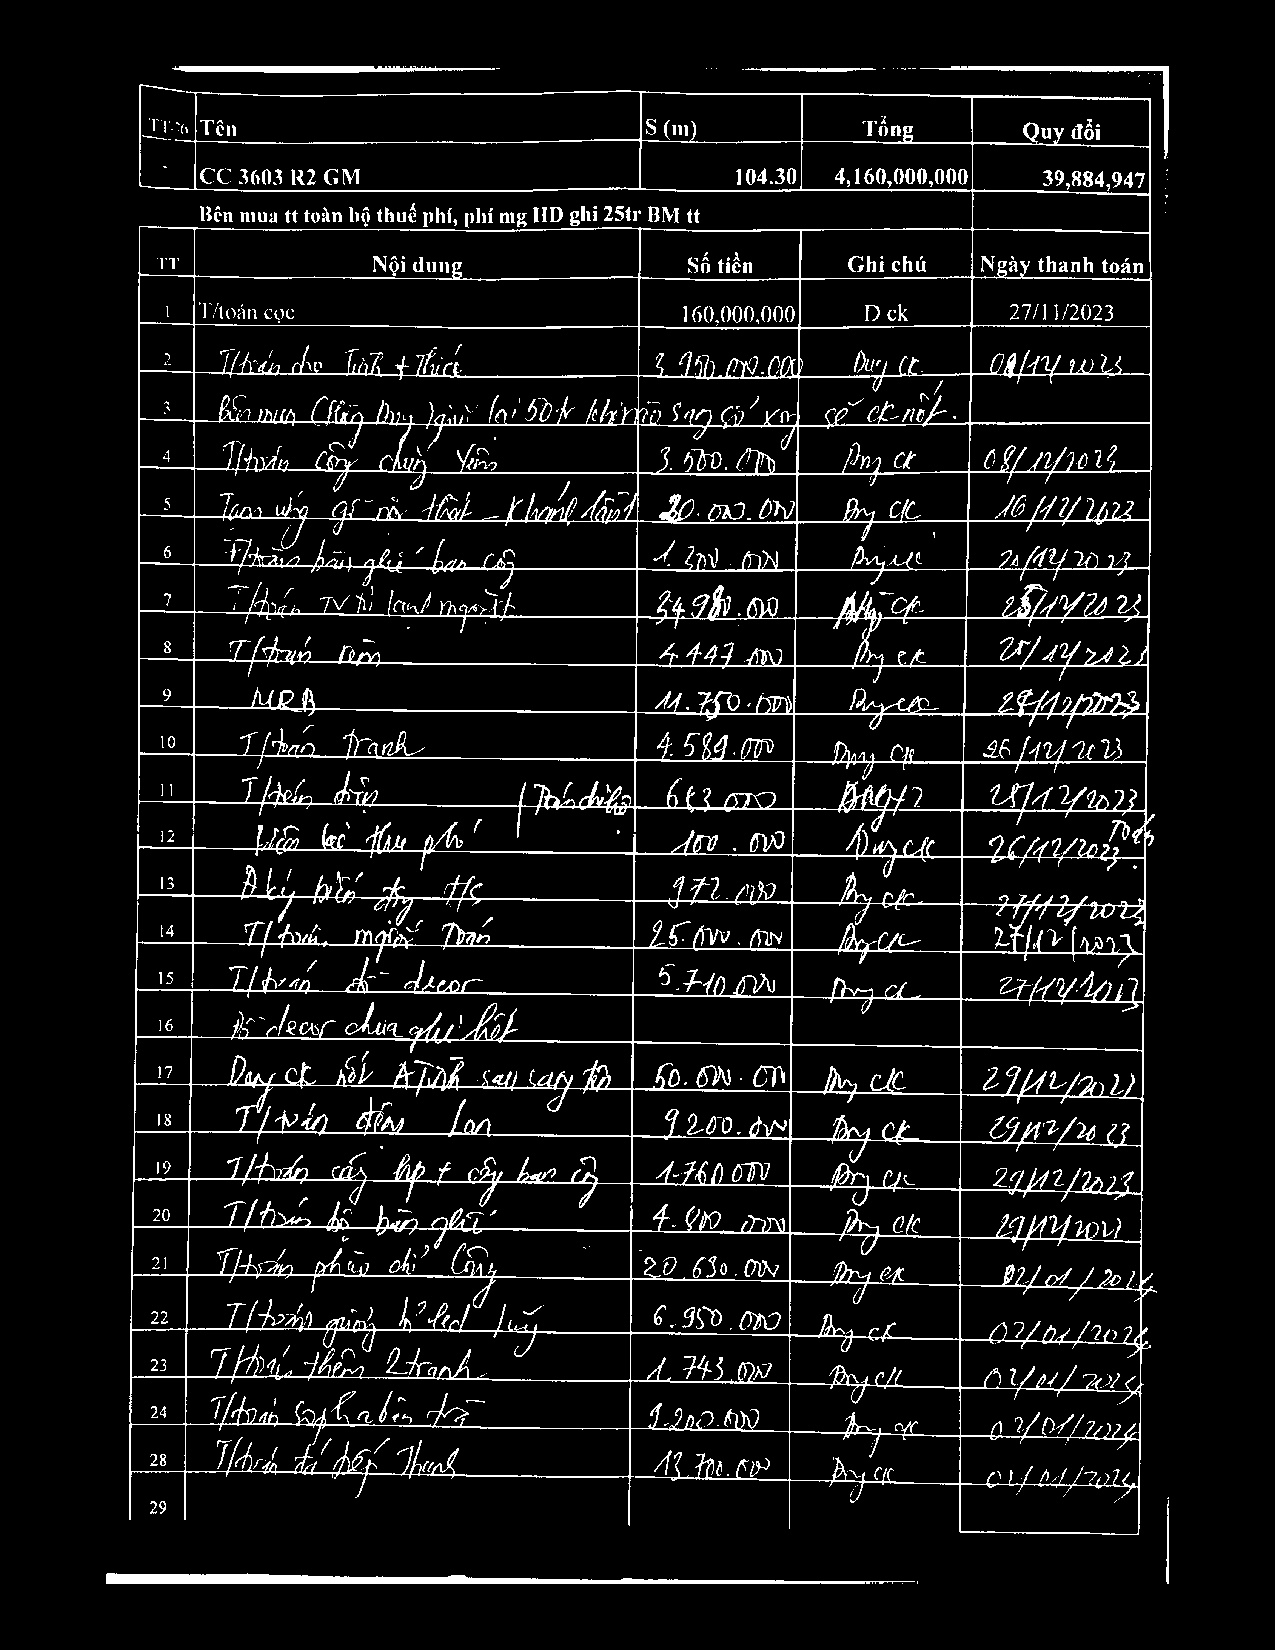 TT Tên S (m) Tổng Quy đổi
CC 3603 R2 GM 104.30 4,160,000,000 39,884,947
Bên mua tt toàn bộ thuế phí, phí mg HD ghi 25tr BM tt
TT Nội dung Số tiền Ghi chú Ngày thanh toán
1 T/toán cọc 160,000,000 D ck 27/11/2023
2 T/toán cho Tình + Thúi 3.950.000.000 Duy CK 08/12/2023
3 Bên mua Duy giữ lại 50tr khi nào sang có xong sẽ ck nốt.
4 T/toán công chứng Yên 3.500.000 Duy CK 08/12/2023
5 Tạm ứng gỗ nội thất - Khánh 20.000.000 Duy CK 16/12/2023
6 T/toán bàn ghế ban công 1.200.000 Duy ck 20/12/2023
7 T/toán TV 34.980.000 CK 25/12/2023
8 T/toán rèm 4.447.000 Duy ck 25/12/2023
9 11.750.000 Duy ck 28/12/2023
10 T/toán tranh 4.589.000 Duy CK 26/12/2023
11 T/toán điện 000 28/12/2023
12 thu phí 100.000 Duy ck 26/12/2023
13 Đ ký biến động 972.000 Duy ck 27/12/2023
14 T/toán môi giới Toán 25.000.000 Duy CK 27/12/2023
15 T/toán đồ decor 5.710.000 Duy ck 27/12/2023
16 Đồ decor chưa ghi hết
17 Duy ck nốt A Tình sau sang tên 50.000.000 Duy ck 29/12/2023
18 T/toán đèn Lan 9.200.000 Duy CK 29/12/2023
19 T/toán cây + cây ban công 1.760.000 Duy ck 29/12/2023
20 T/toán bộ bàn ghế 4.800.000 Duy ck 29/12/2023
21 T/toán phào chỉ Công 20.630.000 Duy ck 02/01/2024
22 T/toán led 6.950.000 Duy ck 02/01/2024
23 T/toán thêm 2 tranh 1.743.000 Duy ck 02/01/2024
24 T/toán bàn trà 9.200.000 Duy ck 02/01/2024
28 T/toán đá bếp Thanh 13.700.000 Duy ck 02/01/2024
29